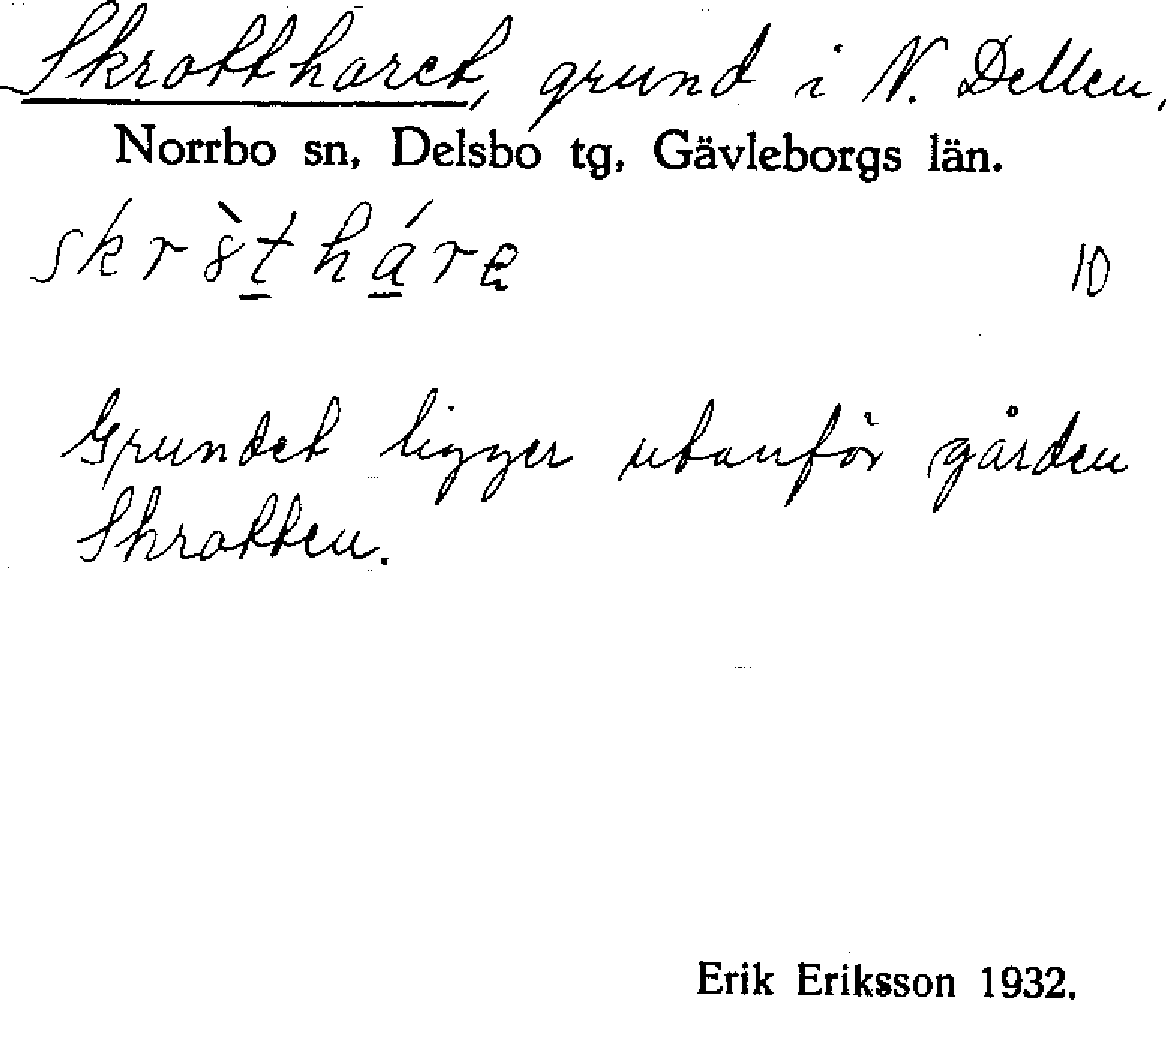 Skrottharet, grund i N. Dellen,
Norrbo sn, Delsbo tg, Gävleborgs län.
skr8̀t̲há̲re 10
Grundet ligger utanför gården
Skrotten.
Erik Eriksson 1932.